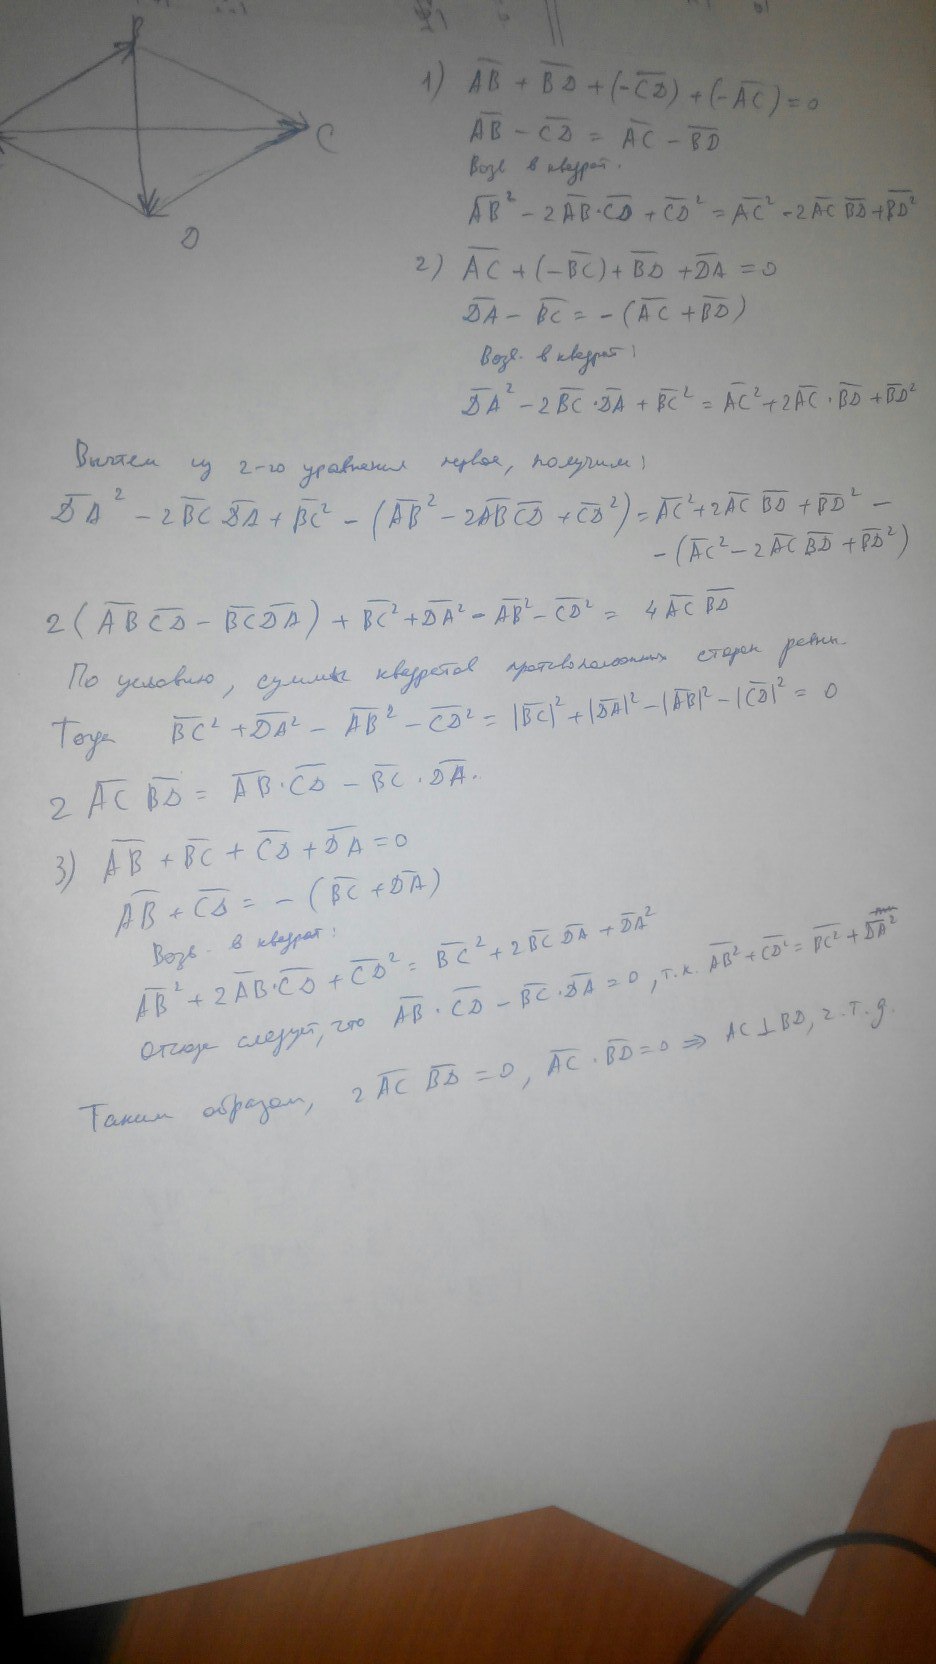 B
C
D
1) AB + BD + (-CD) + (-AC) = 0
AB - CD = AC - BD
Возв в квадрат.
AB² - 2AB·CD + CD² = AC² - 2AC BD + BD²
2) AC + (-BC) + BD + DA = 0
DA - BC = - (AC + BD)
Возв. в квадрат:
DA² - 2BC·DA + BC² = AC² + 2AC·BD + BD²
Вычтем из 2-го уравнения первое, получим:
DA² - 2BC DA + BC² - (AB² - 2AB CD + CD²) = AC² + 2AC BD + BD² -
- (AC² - 2AC BD + BD²)
2(AB CD - BC DA) + BC² + DA² - AB² - CD² = 4AC BD
По условию, суммы квадратов противоположных сторон равны
Тогда BC² + DA² - AB² - CD² = |BC|² + |DA|² - |AB|² - |CD|² = 0
2 AC BD = AB·CD - BC·DA.
3) AB + BC + CD + DA = 0
AB + CD = - (BC + DA)
Возв. в квадрат:
AB² + 2AB·CD + CD² = BC² + 2BC DA + DA²
Отсюда следует, что AB·CD - BC·DA = 0, т.к. AB² + CD² = BC² + DA²
Таким образом, 2 AC BD = 0, AC·BD = 0 ⇒ AC ⊥ BD, ч.т.д.